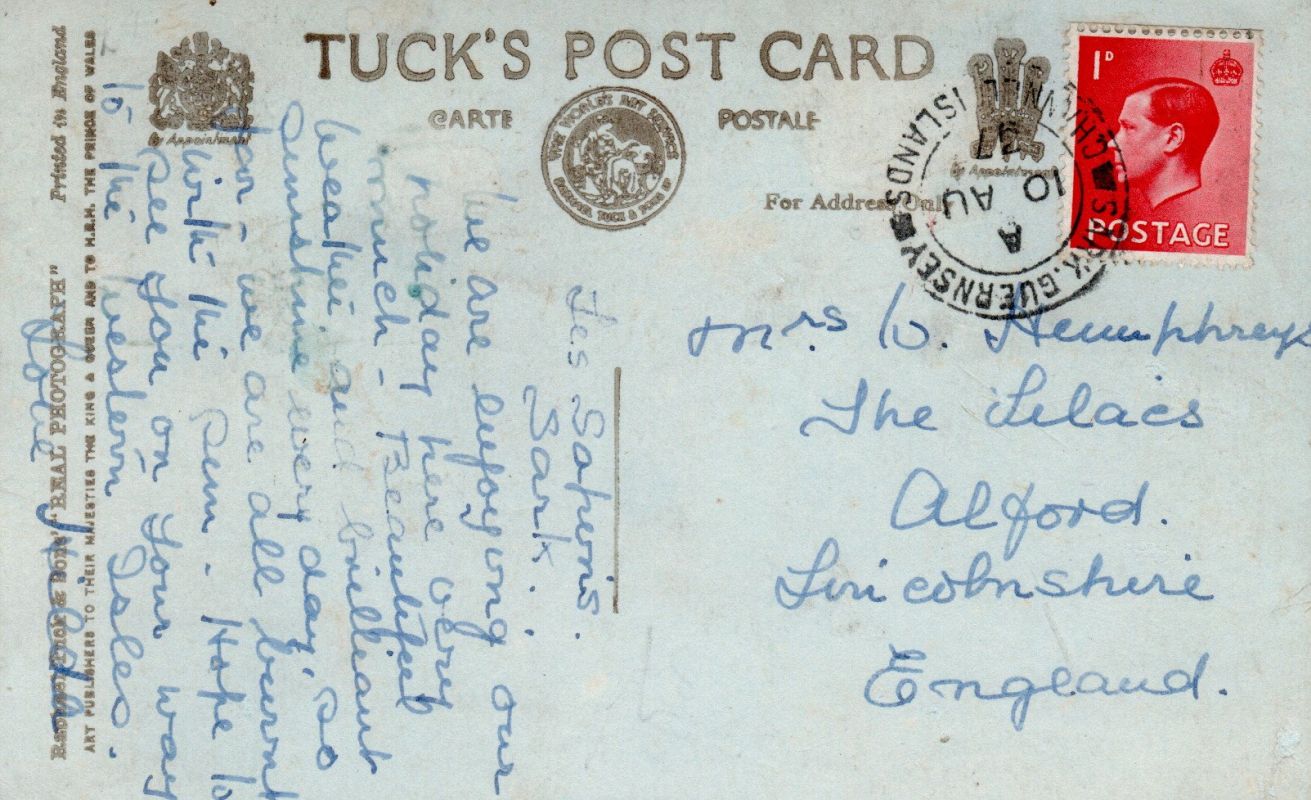 TUCK'S POST CARD
CARTE POSTALE
By Appointment
By Appointment
For Address Only
1D
POSTAGE
SARK. GUERNSEY
CHANNEL ISLANDS
A
10 AU
37
Raphael Tuck & Sons' "REAL PHOTOGRAPH" Printed in England
ART PUBLISHERS TO THEIR MAJESTIES THE KING & QUEEN AND TO H.R.H. THE PRINCE OF WALES
Sark.
We are enjoying our
holiday here very
much - Beautiful
weather and brilliant
sunshine every day, so
far - we are all burnt
with the sun. Hope to
see you on your way
to the western Isles.
Love
Mrs W. Hemphreys
The Lilacs
Alford.
Lincolnshire
England.